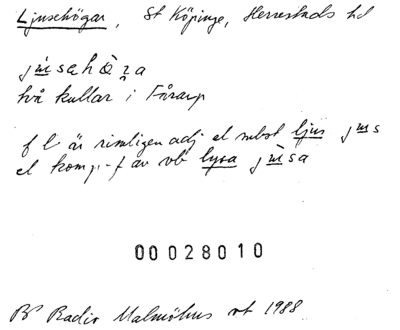 Ljusehögar, St Köpinge, Herrestads hd
två kullar i Fårarp
f l är rimligen adj el subst ljus
el komp.-f av vb lysa
00028010
BP Radio Malmöhus vt 1988